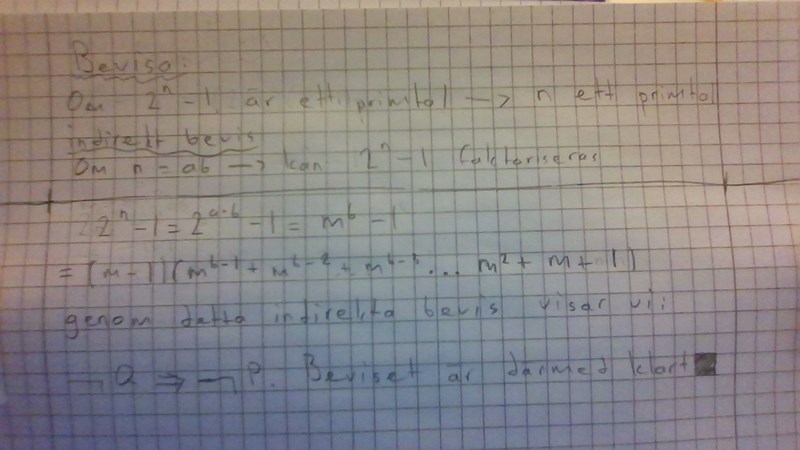 Bevisa:
Om 2ⁿ-1 är ett primtal → n ett primtal
indirekt bevis
Om n = ab → kan 2ⁿ-1 faktoriseras
2ⁿ-1 = 2ᵃ·ᵇ-1 = mᵇ-1
= (m-1)(mᵇ⁻¹ + mᵇ⁻² + mᵇ⁻³ ... m² + m + 1)
genom detta indirekta bevis visar vi:
¬Q ⇒ ¬P. Beviset är därmed klart ■